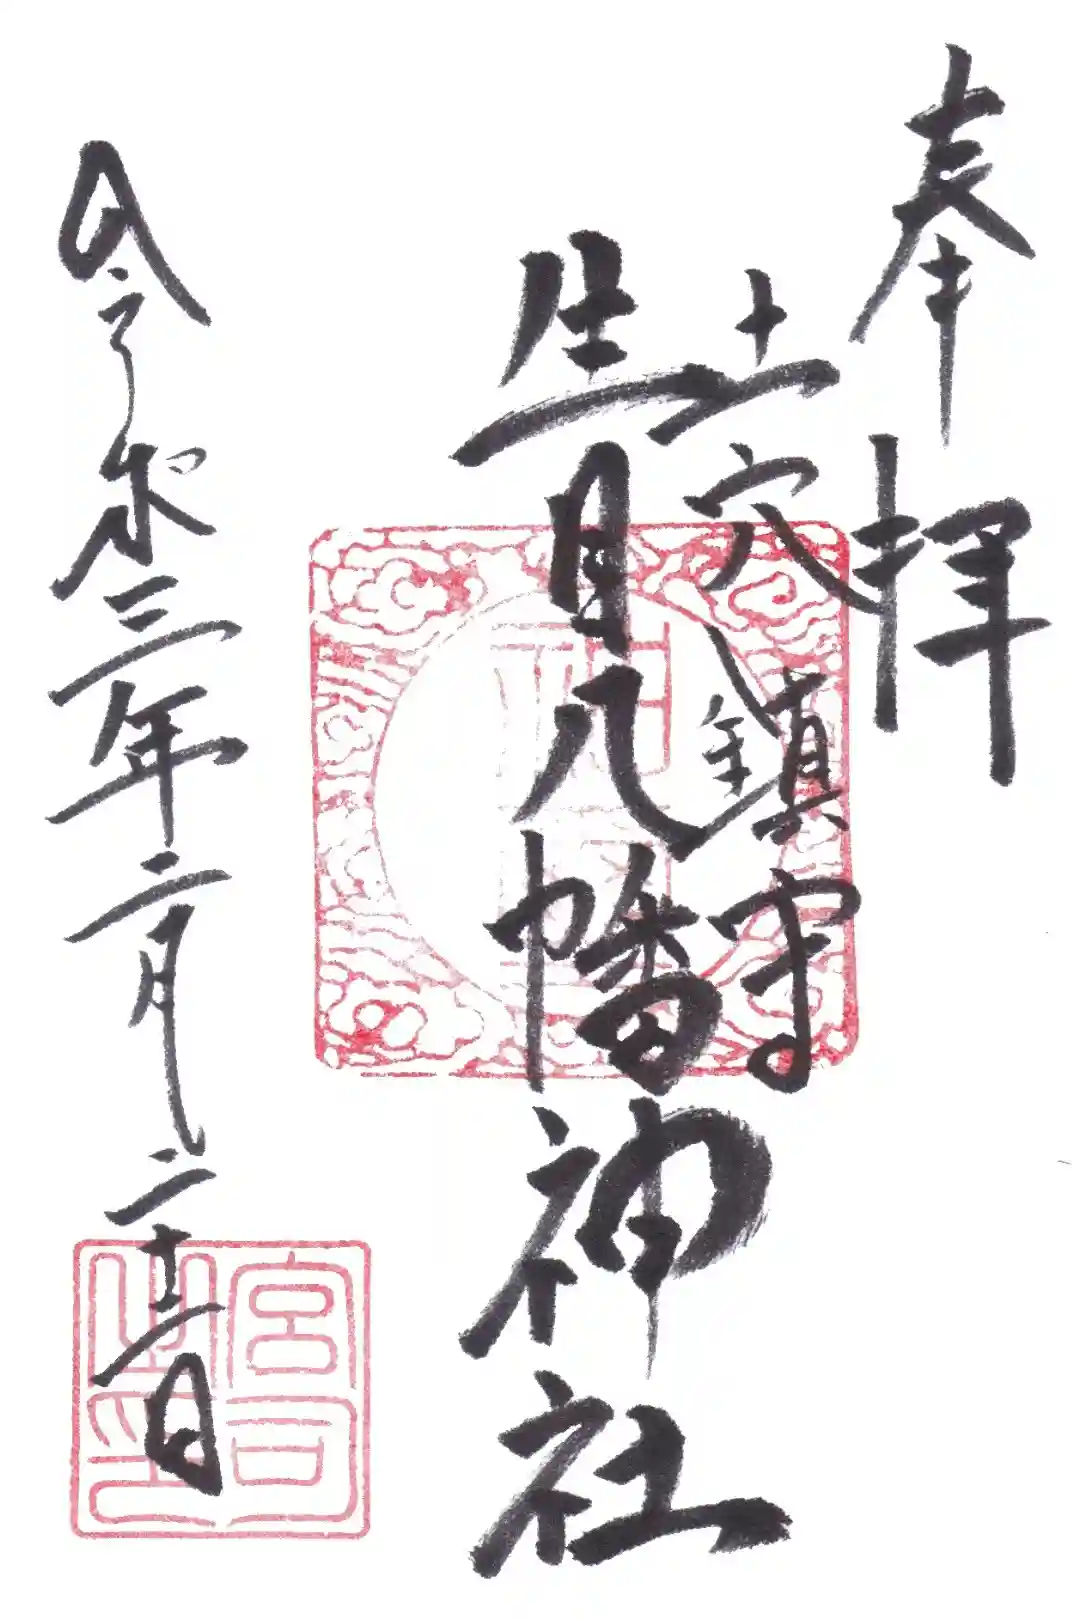 奉拝
土穴鎮守
生目八幡神社
令和三年二月二十二日
宮司之印